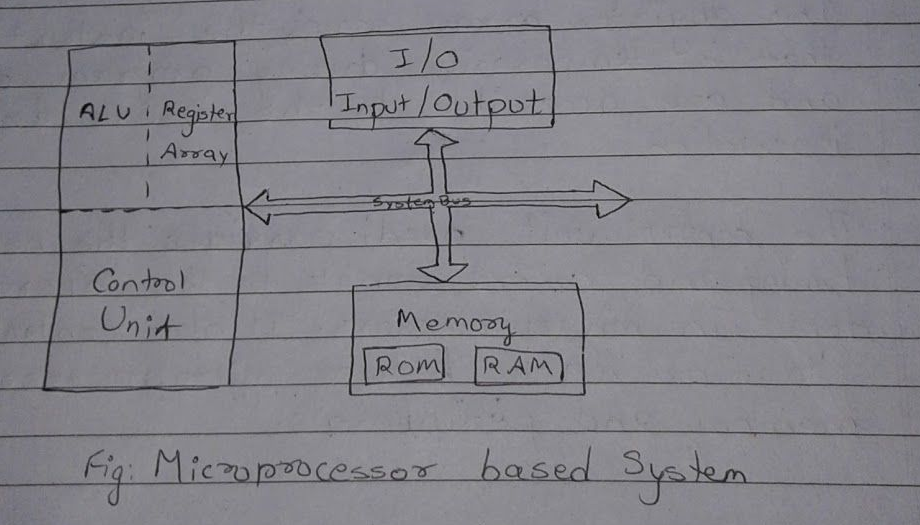 I/O
Input/Output
ALU
Register
Array
System Bus
Control
Unit
Memory
ROM
RAM
Fig: Microprocessor based System